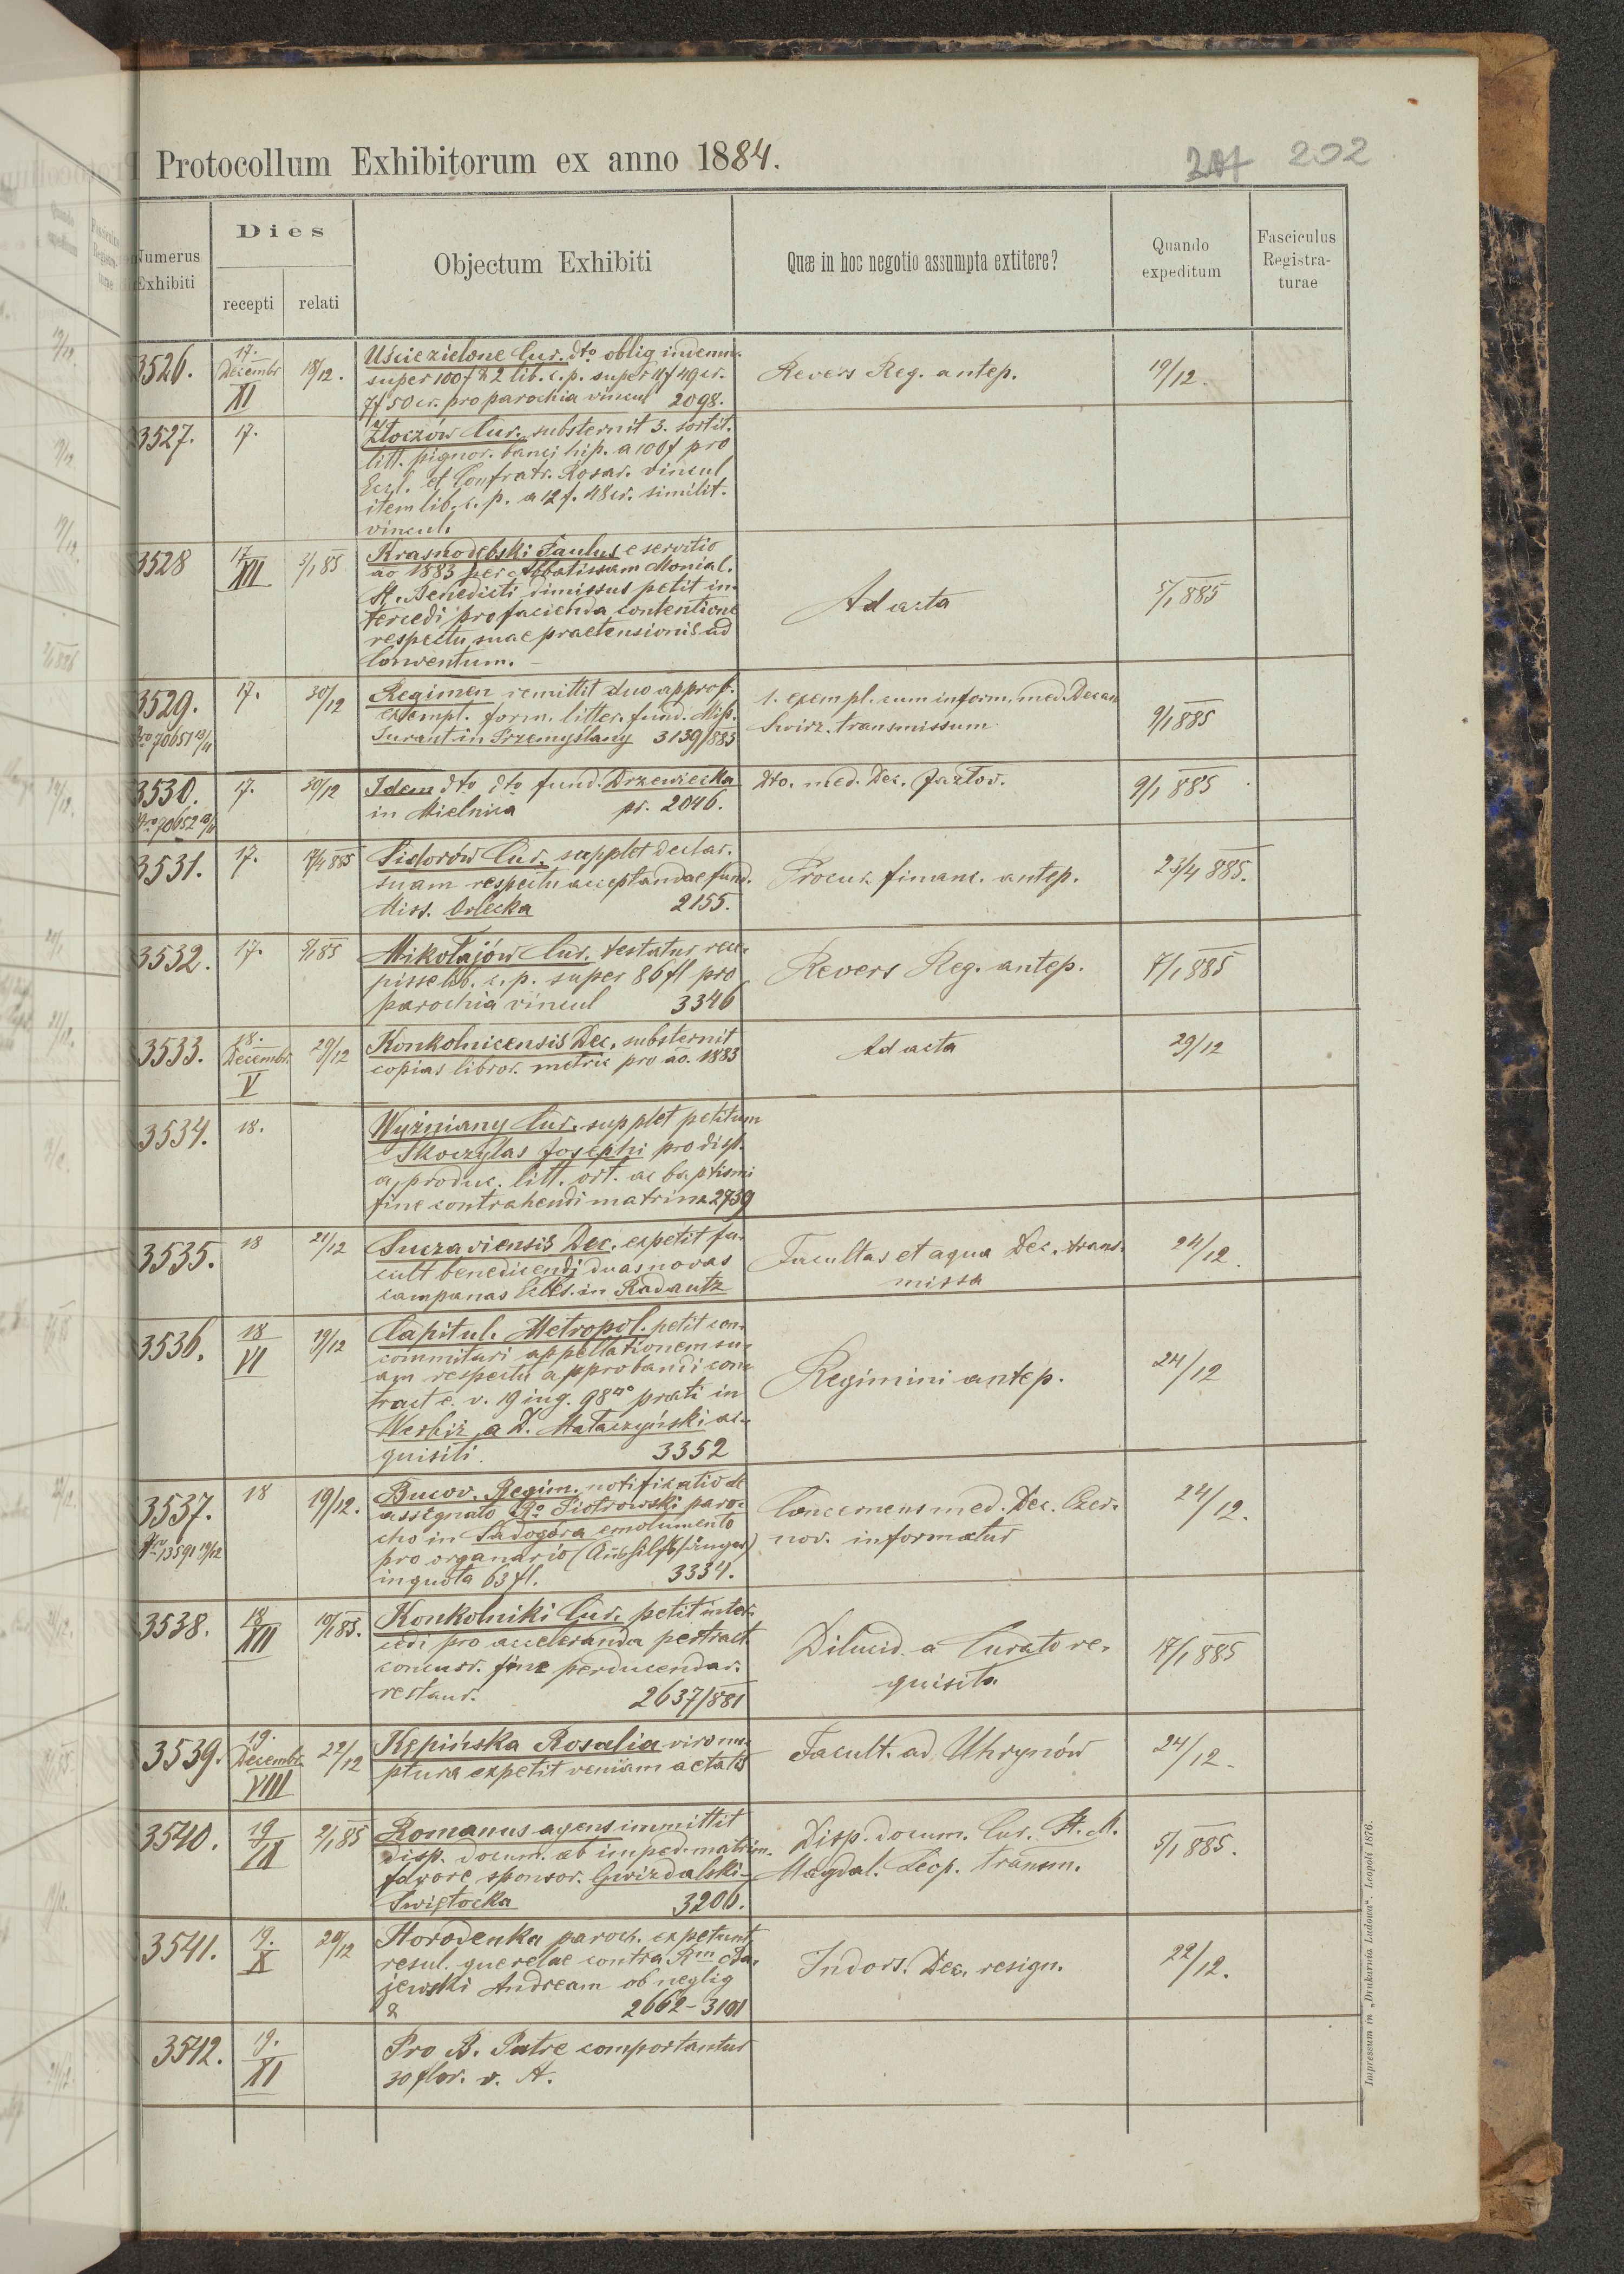 Protocollum Exhibitorum ex anno 1884.
202
Numerus Exhibiti
Dies
recepti
relati
Objectum Exhibiti
Quæ in hoc negotio assumpta extitere?
Quando expeditum
Fasciculus Registra-turae
3526.
17. Decembr XI
18/12.
Uściezielone Cur. dto oblig indemn.
super 100f & 2 lib. c. p. super 4f 49cr.
7f 50cr. pro parochia vincul 2098.
Revers Reg. antep.
19/12.
3527.
17.
Złoczów Cur. substernit 3. sortit.
litt. pignor. banci hip. a 100f pro
Eccl. et Confratr. Rosar. vincul
item lib. c. p. a 12f. 48cr. similit.
vincul.
3528
17 XII
3/1 85
Krasnodębski Paulus e servitio
ao 1883 per Abbatissam Monial.
St. Benedicti dimissus petit in-
tercedi pro facienda contentione
respectu suae praetensionis ad
Conventum. –
Ad acta
5/1 885
3529.
17.
30/12
Regimen remittit duo approb.
exempl. form. litter. fund. Miss.
Surant in Przemyślany 3139/883
1. exempl. cum inform. med. Decan
Swirz. transmissum
9/1 885
3530.
17.
30/12
Idem dto dto fund. Drzewiecka
in Mielnica pr. 2046.
dto. med. Dec. Jazłov.
9/1 885
3531.
17.
17/4 885
Sidorów Cur. supplet declar.
suam respectu acceptandae fund.
Miss. Orlecka 2155.
Procur. financ. antep.
23/4 885.
3532.
17.
5/1 85
Mikołajów Cur. testatur rece-
pisse lib. c. p. super 86 fl pro
parochia vincul 3346
Revers Reg. antep.
7/1 885
3533.
18. Decembr. V
29/12
Konkolnicensis Dec. substernit
copias libror. metric pro ao. 1883
Ad acta
29/12
3534.
18.
Wyżniany Cur. supplet petitum
Skoczylas Josephi pro disp.
a produc. litt. ort. ac baptismi
fine contrahendi matrim 2739
3535.
18
21/12
Suczaviensis Dec. expetit fa-
cult benedicendi duas novas
campanas Eccles. in Radautz
Facultas et aqua Dec. trans-
missa
24/12.
3536.
18 VI
19/12
Capitul. Metropol. petit con-
commitari appellationem su-
am respectu approbandi con-
tract e. v. 19 iug. 98 prati in
Werbiż a Z. Małaczyński ac-
quisiti. 3352
Regimini antep.
24/12
3537.
18
19/12.
Bucov. Regim. notificatio de
assignato Ro Piotrowski paro-
cho in Sadogóra emolumento
pro organario (Aushilfssänger)
in quota 63 fl. 3334.
Concernens med. Dec. Czer-
nov. informatur
24/12.
3538.
18 XII
10/1 85.
Konkolniki Cur. petit inter-
cedi pro acceleranda pertract.
concurr. fine perducendar.
restaur. 2637/881
Dilucid. a Curato re-
quisita
17/1 885
3539.
19. Decembr. VIII
22/12
Kępińska Rosalia viro nu-
ptura expetit veniam aetatis
Facult. ad Uhrynów
24/12.
3540.
19 IX
2/1 85
Romanus agens immittit
disp. docum. ab imped. matrim.
favore sponsor. Gwizdalski-
Swiętocka 3206.
Disp. docum. Cur. St. M.
Magdal. Leop. transm.
5/1 885.
3541.
19. X
20/12
Horodenka paroch. expetunt
resul. querelae contra Rm
jewski Andream ob neglig
& 2662-3101
Indors. Dec. resign.
22/12.
3542.
19. XI
Pro B. Patre comportantur
30 flor. v. A.
Impressum in „Drukarnia Ludowa“. Leopoli 1876.